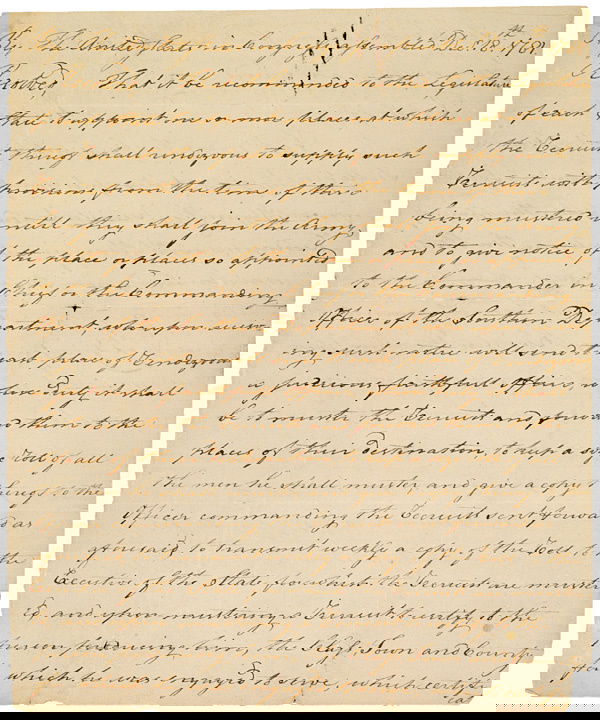 By The United States in Congress assembled Dec. 18th
Resolved, That it be recommended to the Legislature
of each State to appoint one or more places, at which
the Recruits shall rendezvous to supply such
Recruits with provisions from the time of their
being mustered until they shall join the Army
and to give notice of the place or places so appointed
to the Commander in Chief or the Commanding
Officer of the Southern Department, who upon receiving
such notice will send to each place of Rendezvous
a judicious faithfull Officer, whose Duty it shall
be to muster the Recruits and forward them to the
places of their destination, to keep a Roll of all
the men he shall muster, and give a copy to the
Officer commanding the Recruits sent forward as
aforesaid to transmit weekly a copy of the Roll, to the
Executive of the State, for which the Recruits are muster
ed and upon mustering a Recruit to certify it to the
person producing him, the Regt, Town and County
for which he was engaged to serve, which certifi
cat